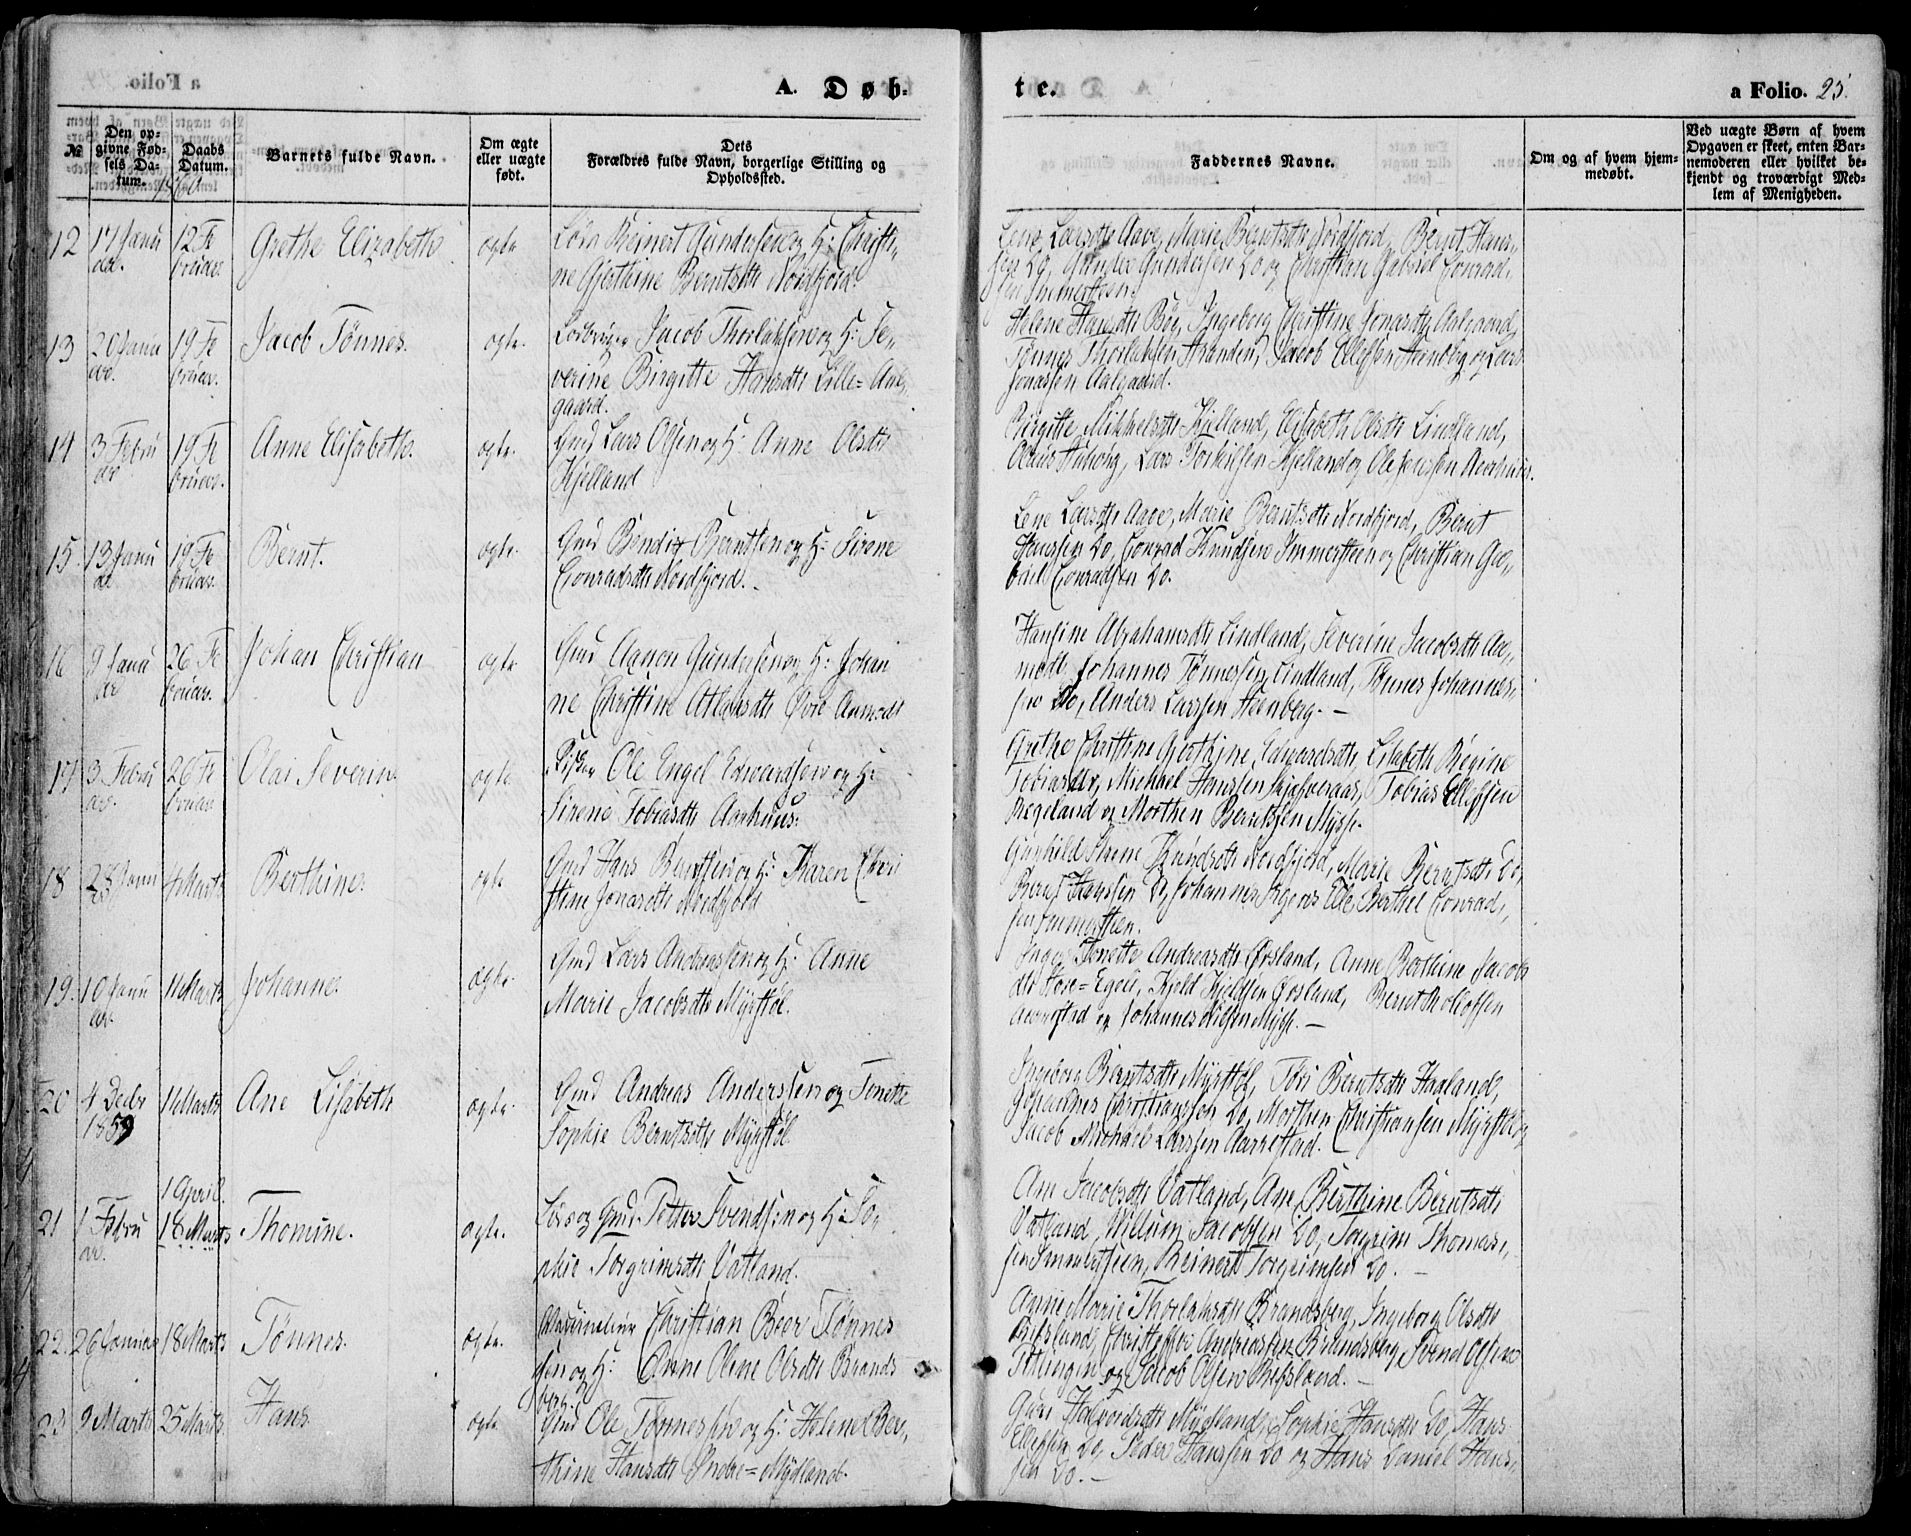 A. Døb-
te.
a Folio. 25.
№
Den op-
givne Fød-
sels Da-
tum.
Daabs
Datum.
Barnets fulde Navn.
Om ægte
eller uægte
født.
Dets
Forældres fulde Navn, borgerlige Stilling og
Opholdssted.
Faddernes Navne.
Om og af hvem hjem-
medøbt.
Ved uægte Børn af hvem
Opgaven er skeet, enten Bar-
nemoderen eller hvilket be-
kjendt og troværdigt Med-
lem af Menigheden.
1860
12
17 Janu
ar.
12 Fe
bruar.
Grethe Elizabeth
ægte
Reinert Gundersen og H: Christi-
ne Gjethine Berntsdtr Nordfjord.
Lene Larsdtr Aave, Marie Berntsdtr Nordfjord, Bernt Hans-
sen Do, Gunder Gundersen Do og Christian Gabriel Conrad-
sen Immersteen.
13
20 Janu
ar.
19 Fe
bruar.
Jacob Tønnes.
ægte.
Jacob Thorlaksen og H: Se-
verine Birgitte Hansdtr Lille-Aal-
gaard.
Helene Hansdtr Bøe, Ingeborg Christine Jonasdtr Aalgaard,
Tønnes Thorlaksen Stranden, Jacob Ellefsen Steenberg og Lars
Jonassen Aalgaard.
14
3 Febru
ar
19 Fe
bruar.
Anne Elisabeth.
ægte.
Gmd Lars Olsen og H: Anne Olsdtr
Kjelland
Birgitte Mikkelsdtr Kjelland, Elisabeth Olsdtr Lindland,
Lars Torkilsen Kjelland og Ole Aarhuus.
15.
13 Janu
ar
19 Fe
bruar.
Bernt.
ægte.
Gmd Bendix Berntsen og H: Sirene
Conradsdtr Nordfjord.
Lene Larsdtr Aave, Marie Berntsdtr Nordfjord, Bernt
Hanssen Do, Conrad Knudsen Immersteen og Christian Ga-
briel Conradsen Do.
16
9 Janu
ar
26 Fe
bruar.
Johan Christian
ægte
Gmd Aanon Gundersen og H: Johan
ne Christine Atlaksdtr Øvre Aamodt
Hansine Abrahamsdtr Lindland, Severine Jacobsdtr Aa-
modt, Johannes Tønnessen Lindland, Tønnes Johannes-
sen Do, Anders Larssen Steenberg. —
17
3 Febru
ar.
26 Fe
bruar
Olai Severin
ægte
Ole Engel Edwardsen og H:
Sirene Tobiasdtr Aarhuus.
Grethe Christine Gjerthine Edwardsdtr, Lisabeth Regine
Tobiasdtr, Michael Hanssen Skjefveraas, Tobias Ellefsen
Regeland og Morthen Berntsen Mysse.
18
28 Janu
4 Marts
Berthine.
ægte
Gmd Hans Berntsen og H: Karen Chri
stine Jonasdtr Nordfjord
Gunhild Sirene Knudsdtr Nordfjord, Marie Berntsdtr Do,
Bernt Hanssen Do, Johannes Berthel Conrad-
sen Immersteen.
19.
10 Janu
ar.
11 Marts
Johanne.
ægte.
Gmd Lars Andreassen og H: Anne
Marie Jacobsdtr Myrstøl.
Inger Tonette Andreasdtr Ørsland, Anne Berthine Jacob
dtr Store-Egeli, Kjeld Kjeldsen Ørsland, Bernt
Aarrestad og Johannes Nilsen Mysse. —
20
4 Decbr
1859
11 Marts
Ane Lisabeth
ægte.
Gmd Andreas Anderssen og Tonette
Sophie Berntsdtr Myrstøl
Ingeborg Berntsdtr Myrstøl, Tori Berntsdtr Haaland,
Johannes Christianssen Do, Morthen Christiansen Myrstøl og
Jacob Michael Larssen Aarrestad.
21
1 Febru
ar.
1 April.
18 Marts
Thomine.
ægte.
Gmd. Petter Svendsen og H: So-
phie Torgrimsdtr Vatland.
Ane Jacobsdtr Vatland, Ane Berthine Berntsdtr
Vatland, Villum Jacobsen Do, Torgrim Thomas-
sen Immersteen, Reinert Torgrimsen Do. —
22.
26 Januar
18 Marts
Tønnes.
ægte.
Christian Beer Tønnes
sen og H: Anne Olene Olsdtr Brands
berg.
Anne Marie Thorlaksdtr Brandsberg, Ingeborg Olsdtr
Refsland, Christoffer Andreassen Brandsberg, Svend Olsen
Tellingen og Jacob Olsen Refsland. —
23
9 Marts
25 Marts
Hans
ægte.
Gmd Ole Tønnessen og H: Helene Ber-
thine Hansdtr Indre-Mydland.
Guri Halvordsdtr Mydland, Sophie Hansdtr Do, Hans
Ellefsen Do, Peder Hanssen Do og Hans Daniel Hans-
sen Do. —